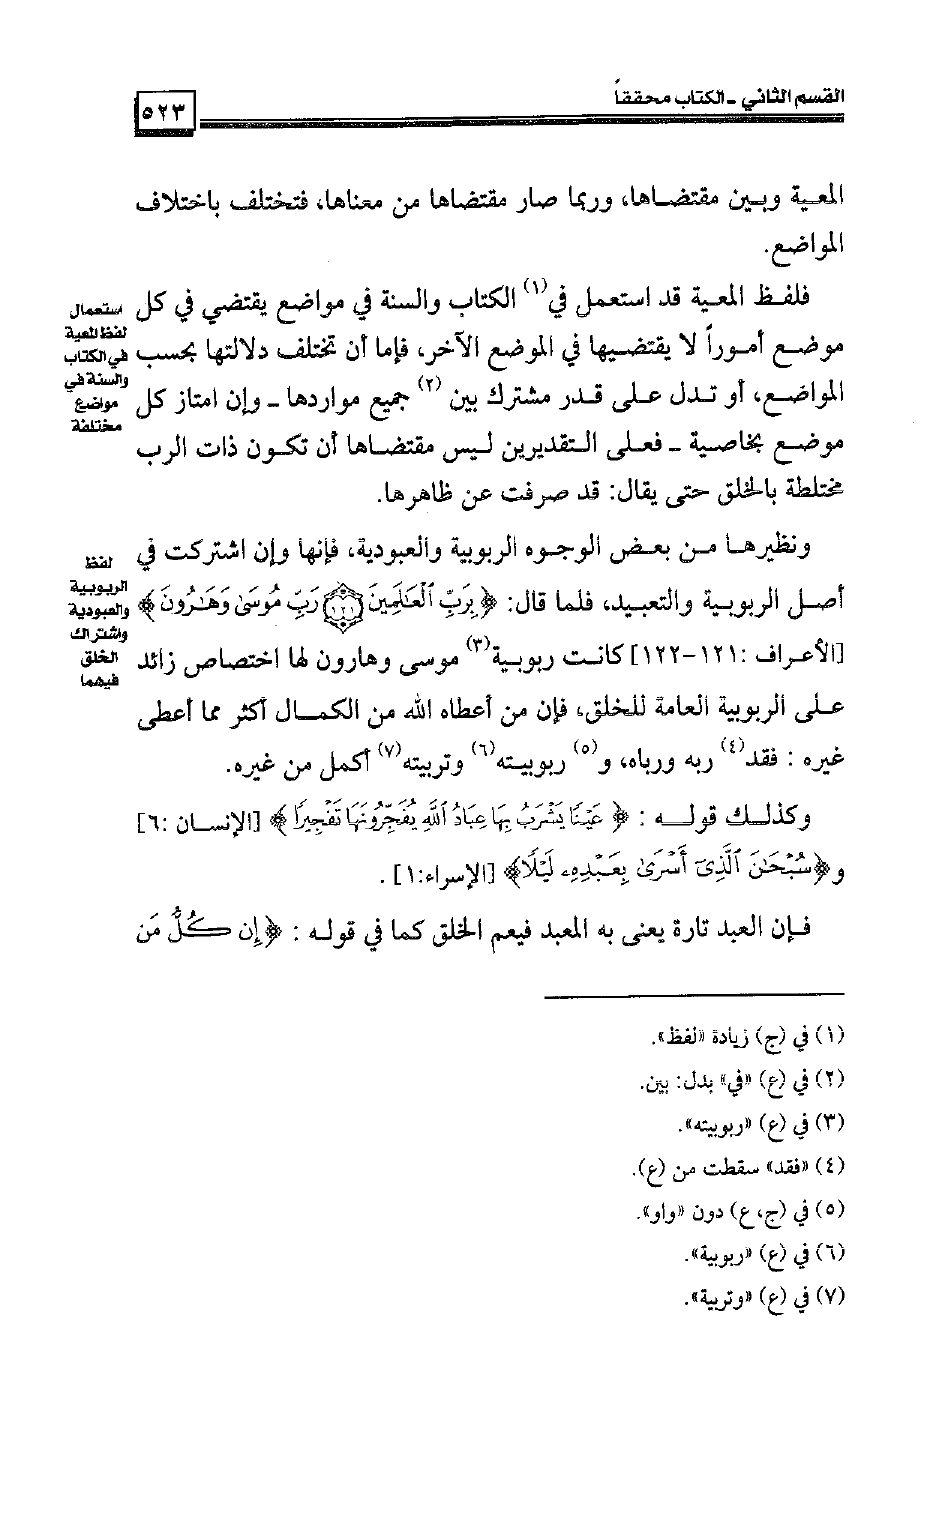 القسم الثاني ـ الكتاب محققاً
٥٢٣
المعية وبين مقتضاها، وربما صار مقتضاها من معناها، فتختلف باختلاف
المواضع.
فلفظ المعية قد استعمل في(١) الكتاب والسنة في مواضع يقتضي في كل
موضع أموراً لا يقتضيها في الموضع الآخر، فإما أن تختلف دلالتها بحسب
المواضع، أو تدل على قدر مشترك بين(٢) جميع مواردها ـ وإن امتاز كل
موضع بخاصية ـ فعلى التقديرين ليس مقتضاها أن تكون ذات الرب
مختلطة بالخلق حتى يقال: قد صرفت عن ظاهرها.
استعمال
لفظ المعية
في الكتاب
والسنة في
مواضع
مختلفة
ونظيرها من بعض الوجوه الربوبية والعبودية، فإنها وإن اشتركت في
أصل الربوبية والتعبيد، فلما قال: ﴿بِرَبِّ ٱلْعَٰلَمِينَ ١٢١ رَبِّ مُوسَىٰ وَهَٰرُونَ﴾
[الأعراف :١٢١-١٢٢] كانت ربوبية(٣) موسى وهارون لها اختصاص زائد
على الربوبية العامة للخلق، فإن من أعطاه الله من الكمال أكثر مما أعطى
غيره : فقد(٤) ربه ورباه، و(٥) ربوبيته(٦) وتربيته(٧) أكمل من غيره.
لفظ
الربوبية
والعبودية
واشتراك
الخلق
فيهما
وكذلك قوله : ﴿عَيْنًا يَشْرَبُ بِهَا عِبَادُ ٱللَّهِ يُفَجِّرُونَهَا تَفْجِيرًا﴾ [الإنسان :٦]
و﴿سُبْحَٰنَ ٱلَّذِىٓ أَسْرَىٰ بِعَبْدِهِۦ لَيْلًا﴾ [الإسراء:١] .
فإن العبد تارة يعنى به المعبد فيعم الخلق كما في قوله : ﴿إِن كُلُّ مَن
(١) في (ج) زيادة «لفظ».
(٢) في (ع) «في» بدل: بين.
(٣) في (ع) «ربوبيته».
(٤) «فقد» سقطت من (ع).
(٥) في (ج، ع) دون «واو».
(٦) في (ع) «ربوبية».
(٧) في (ع) «وتربية».